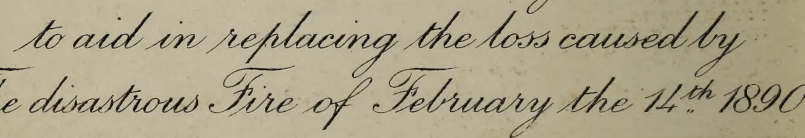 to aid in replacing the loss caused by
e disastrous Fire of February the 14th 1890